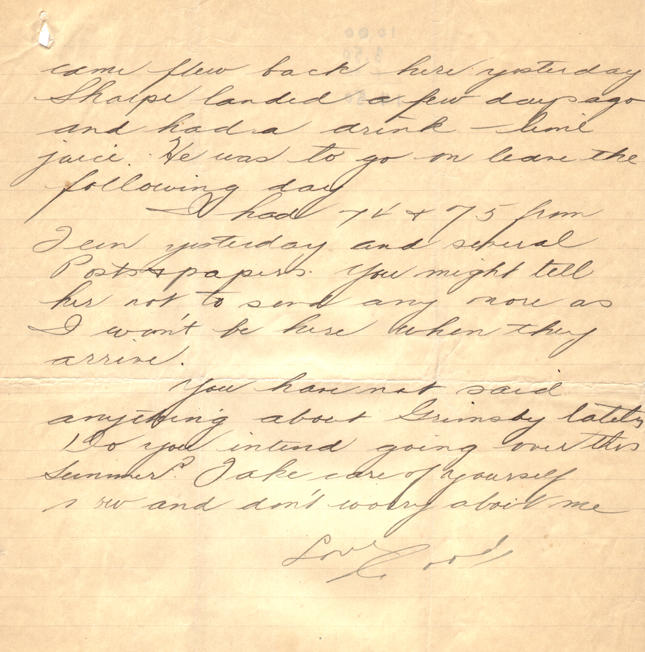 came flew back here yesterday
Sharpe landed a few days ago
and had a drink – lime
juice. He was to go on leave the
following day
I had 74 & 75 from
Jean yesterday and several
Posts & papers. You might tell
her not to send any more as
I won't be here when they
arrive.
You have not said
anything about Grimsby lately
Do you intend going over this
summer? Take care of yourself
now and don't worry about me
Love